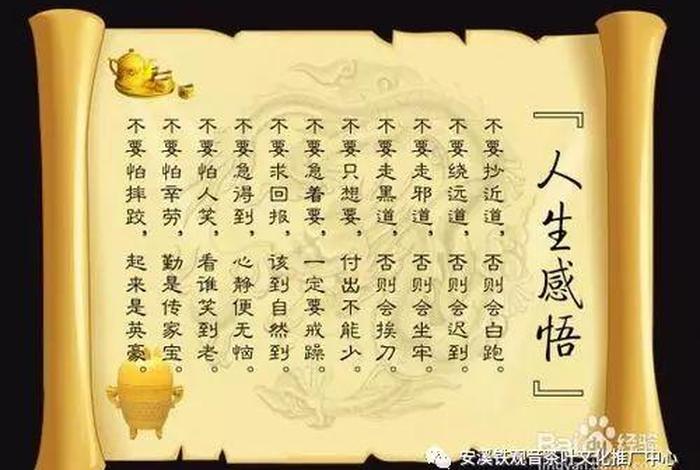 『人生感悟』
不要抄近道，否则会白跑。
不要绕远道，否则会迟到。
不要走邪道，否则会坐牢。
不要走黑道，否则会挨刀。
不要只想要，付出不能少。
不要急着要，一定要戒躁。
不要求回报，该到自然到。
不要急得到，心静便无恼。
不要怕人笑，看谁笑到老。
不要怕辛劳，勤是传家宝。
不要怕摔跤，起来是英豪。
Bai 经验
安溪铁观音茶叶文化推广中心